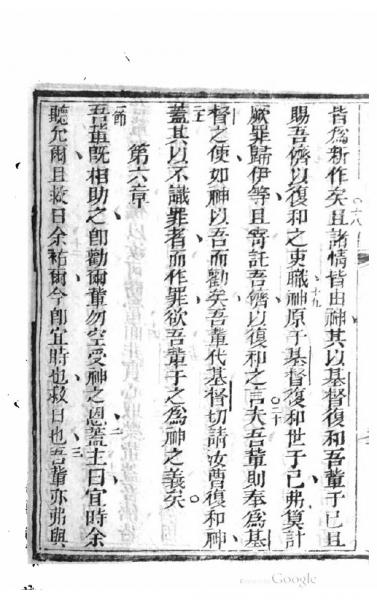 皆為新作矣且諸情皆由神其以基督復和吾輩于己且
十八
賜吾儕以復和之吏職神原于基督復和世于己弗筭計
十九
厥罪歸伊等且寄託吾儕以復和之言夫吾輩則奉為基
二十
督之使如神以吾而勸矣吾輩代基督切請汝曹復和神
蓋其以不識罪者而作罪欲吾輩于之為神之義矣
第六章
一節
吾輩既相助之即勸爾輩勿空受神之恩蓋主曰宜時余
二
聽允爾且救日余祐爾今即宜時也救日也吾輩亦弗與
三
Google